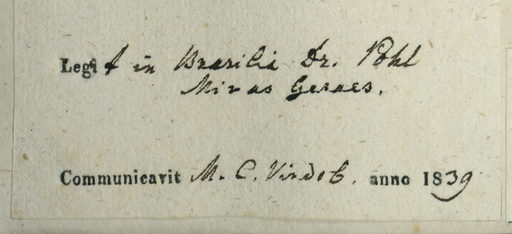 Legit in Brasilia Dr. Pohl
Minas Geraes.
Communicavit M. C. Vindob. anno 1839